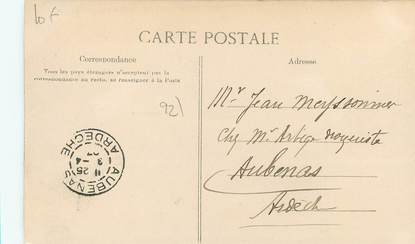 10 F
CARTE POSTALE
Correspondance
Tous les pays étrangers n'acceptent pas la
correspondance au recto, se renseigner à la Poste
Adresse
921
Mr Jean Meyssonnier
Chez Mr
Aubenas
Ardèche
AUBENAS
11 25
3 - 4
07
ARDECHE